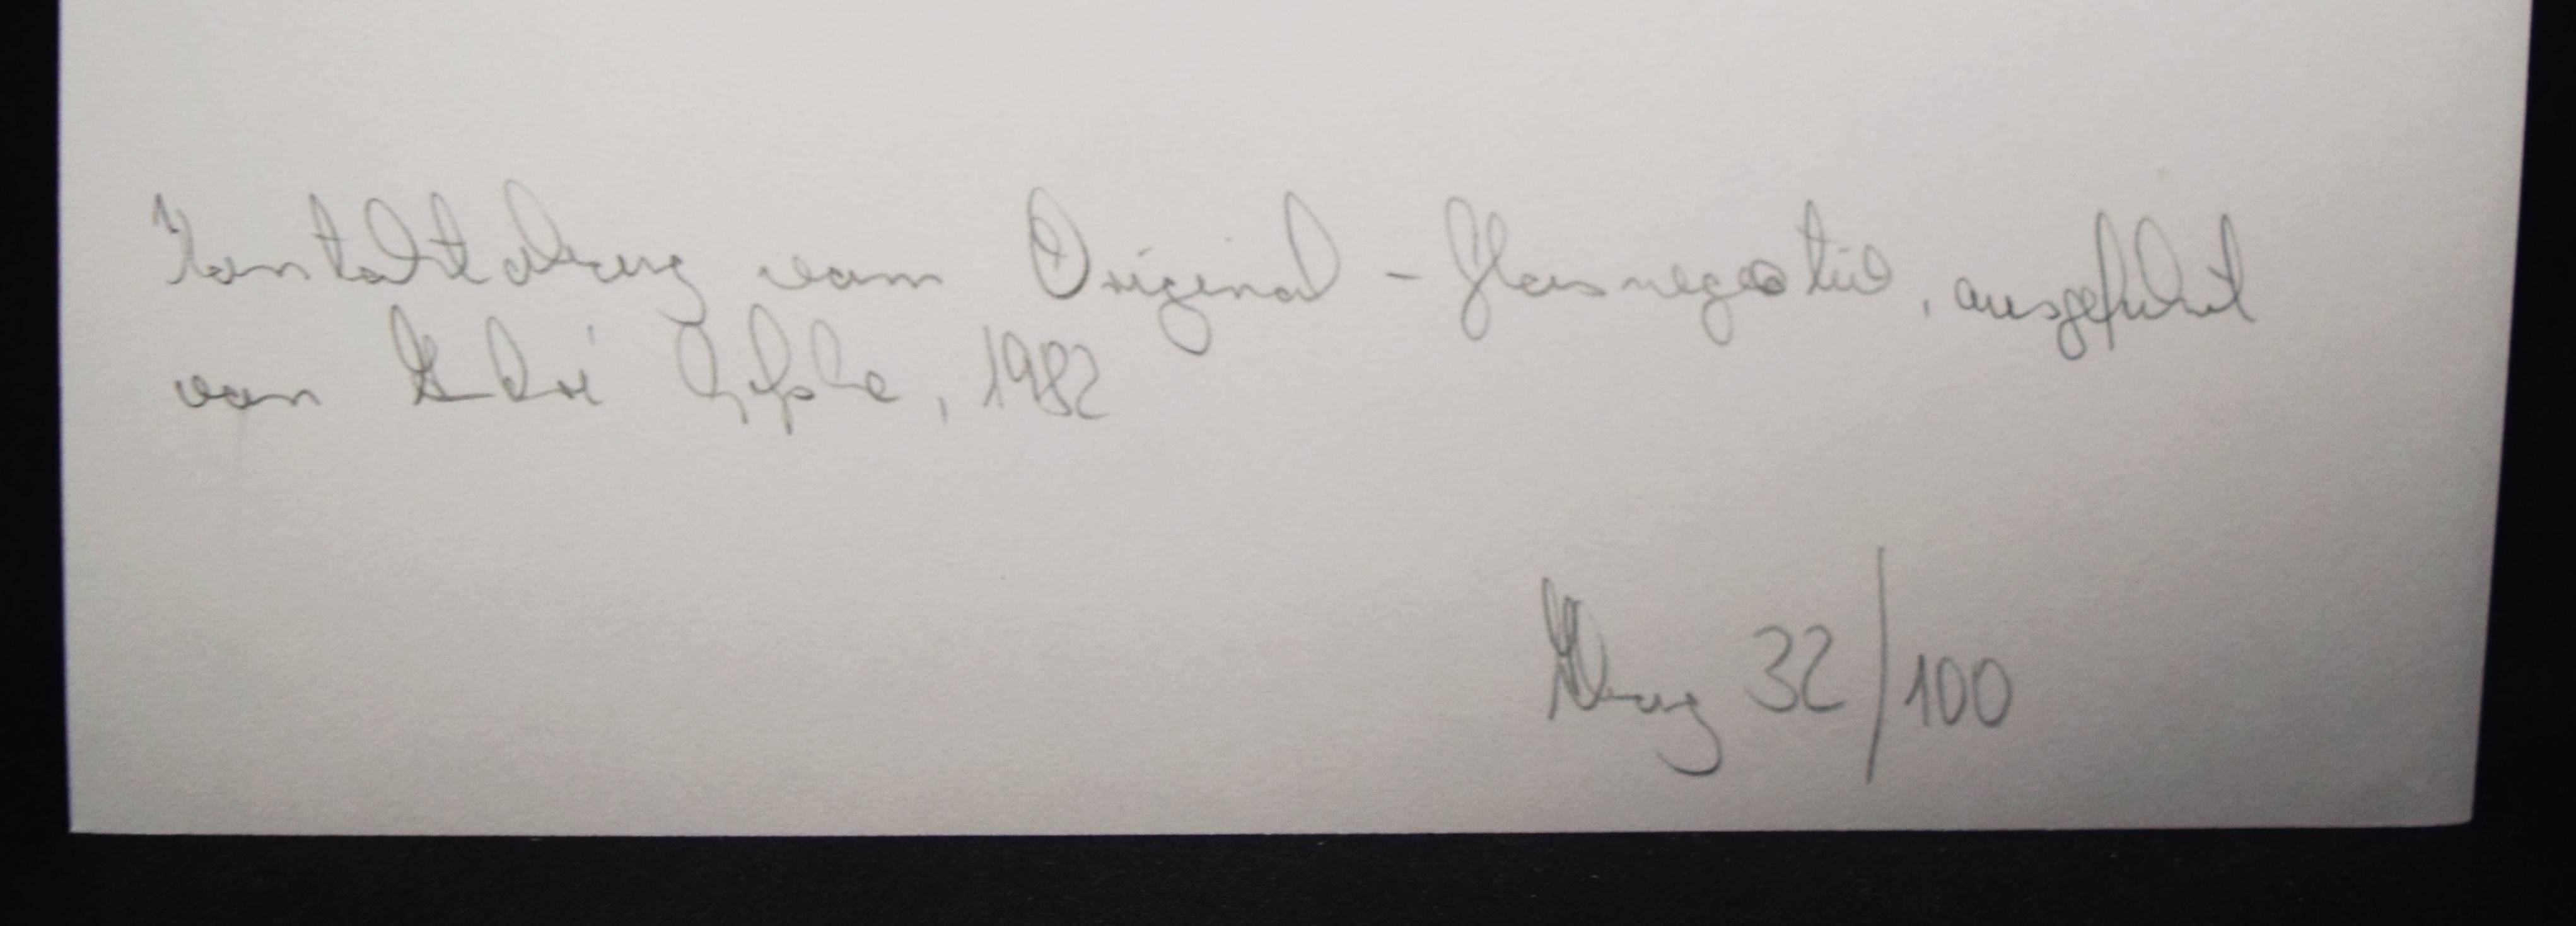 Kontaktabzug vom Original - Glasnegativ, ausgeführt
von André , 1982
Abzug 32/100